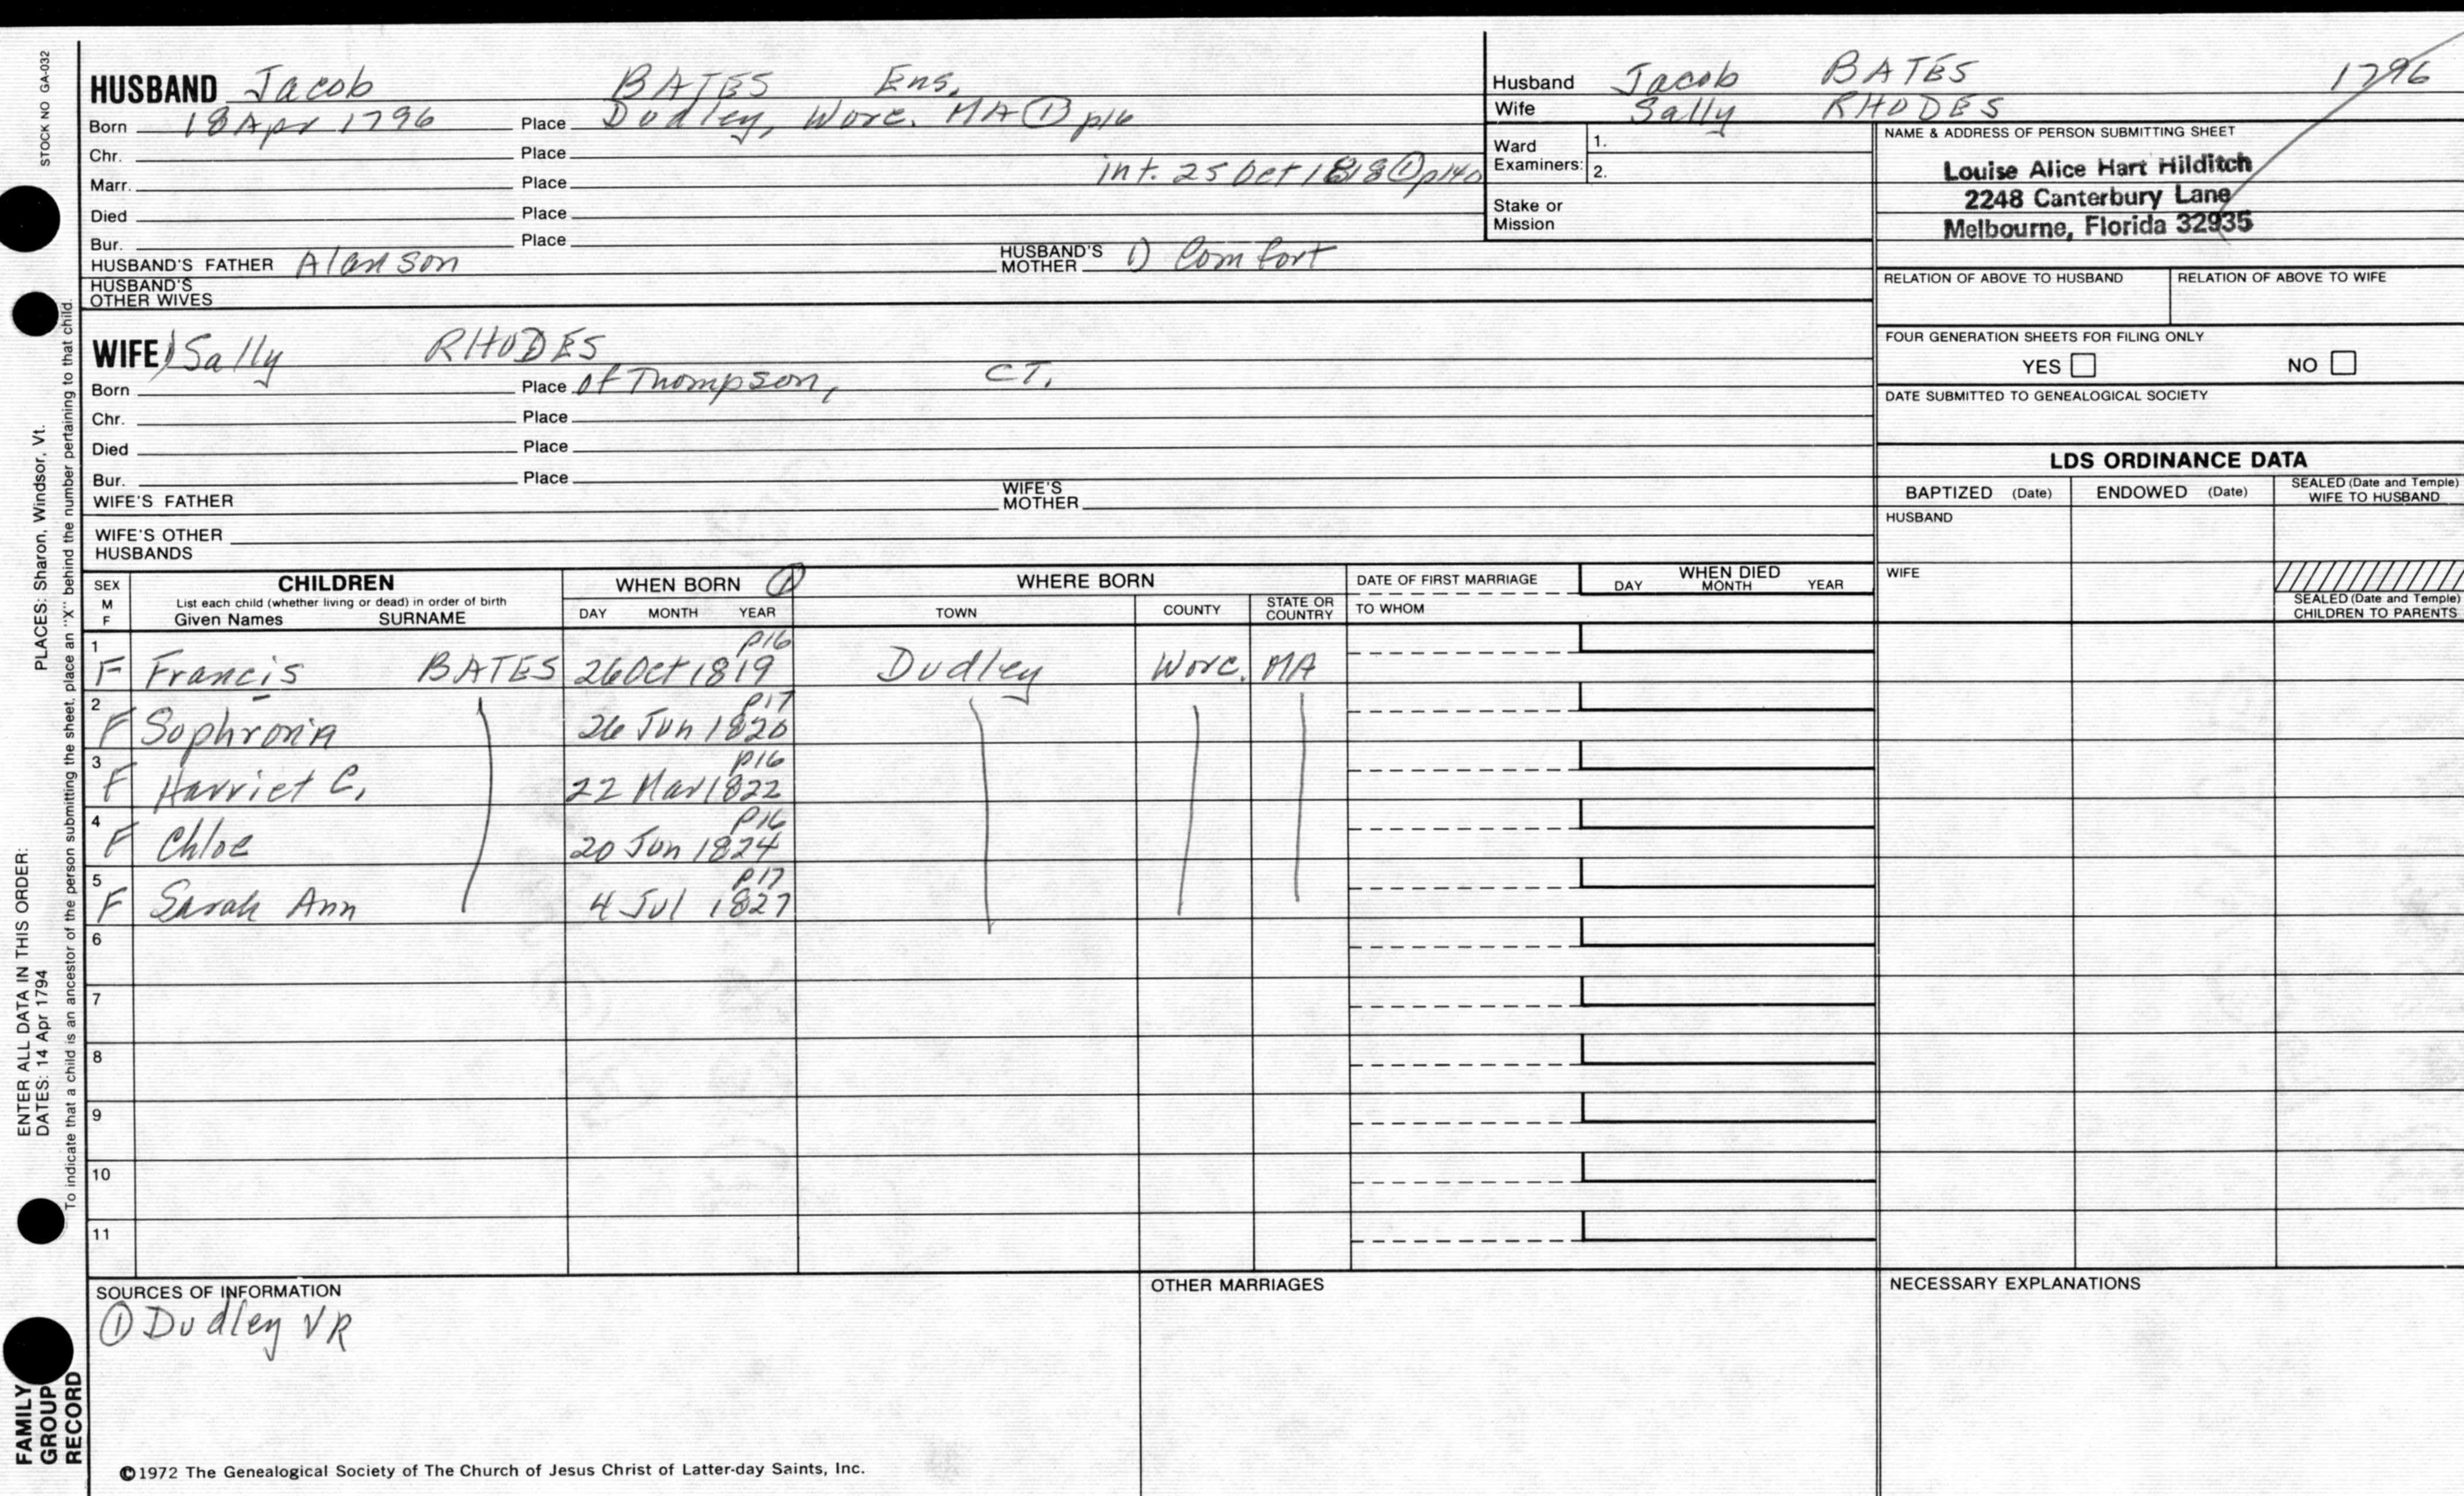 HUSBAND Jacob BATES Ens.
Born 18 Apr 1796 Place Dudley, Worc. MA ① p16
Chr. Place
Marr. Place int. 25 Oct 1818 ① p140
Died Place
Bur. Place
HUSBAND'S FATHER Alanson HUSBAND'S MOTHER 1) Comfort
HUSBAND'S OTHER WIVES
WIFE 1) Sally RHODES
Born Place of Thompson, CT.
Chr. Place
Died Place
Bur. Place
WIFE'S FATHER WIFE'S MOTHER
WIFE'S OTHER HUSBANDS
Husband Jacob BATES 1796
Wife Sally RHODES
Ward Examiners: 1.
2.
Stake or Mission
NAME & ADDRESS OF PERSON SUBMITTING SHEET
Louise Alice Hart Hilditch
2248 Canterbury Lane
Melbourne, Florida 32935
RELATION OF ABOVE TO HUSBAND RELATION OF ABOVE TO WIFE
FOUR GENERATION SHEETS FOR FILING ONLY
YES NO
DATE SUBMITTED TO GENEALOGICAL SOCIETY
LDS ORDINANCE DATA
BAPTIZED (Date) ENDOWED (Date) SEALED (Date and Temple) WIFE TO HUSBAND
HUSBAND
WIFE
SEALED (Date and Temple) CHILDREN TO PARENTS
SEX M F CHILDREN WHEN BORN ① WHERE BORN DATE OF FIRST MARRIAGE WHEN DIED
List each child (whether living or dead) in order of birth
Given Names SURNAME DAY MONTH YEAR TOWN COUNTY STATE OR COUNTRY TO WHOM DAY MONTH YEAR
1 p16
F Francis BATES 26 Oct 1819 Dudley Worc. MA
2 p17
F Sophronia 26 Jun 1820
3 p16
F Harriet C. 22 Mar 1822
4 p16
F Chloe 20 Jun 1824
5 p17
F Sarah Ann 4 Jul 1827
6
7
8
9
10
11
SOURCES OF INFORMATION OTHER MARRIAGES NECESSARY EXPLANATIONS
① Dudley VR
©1972 The Genealogical Society of The Church of Jesus Christ of Latter-day Saints, Inc.
STOCK NO GA-032
PLACES: Sharon, Windsor, Vt.
To indicate that a child is an ancestor of the person submitting the sheet, place an "X" behind the number pertaining to that child.
ENTER ALL DATA IN THIS ORDER:
DATES: 14 Apr 1794
FAMILY
GROUP
RECORD